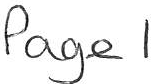 Page 1